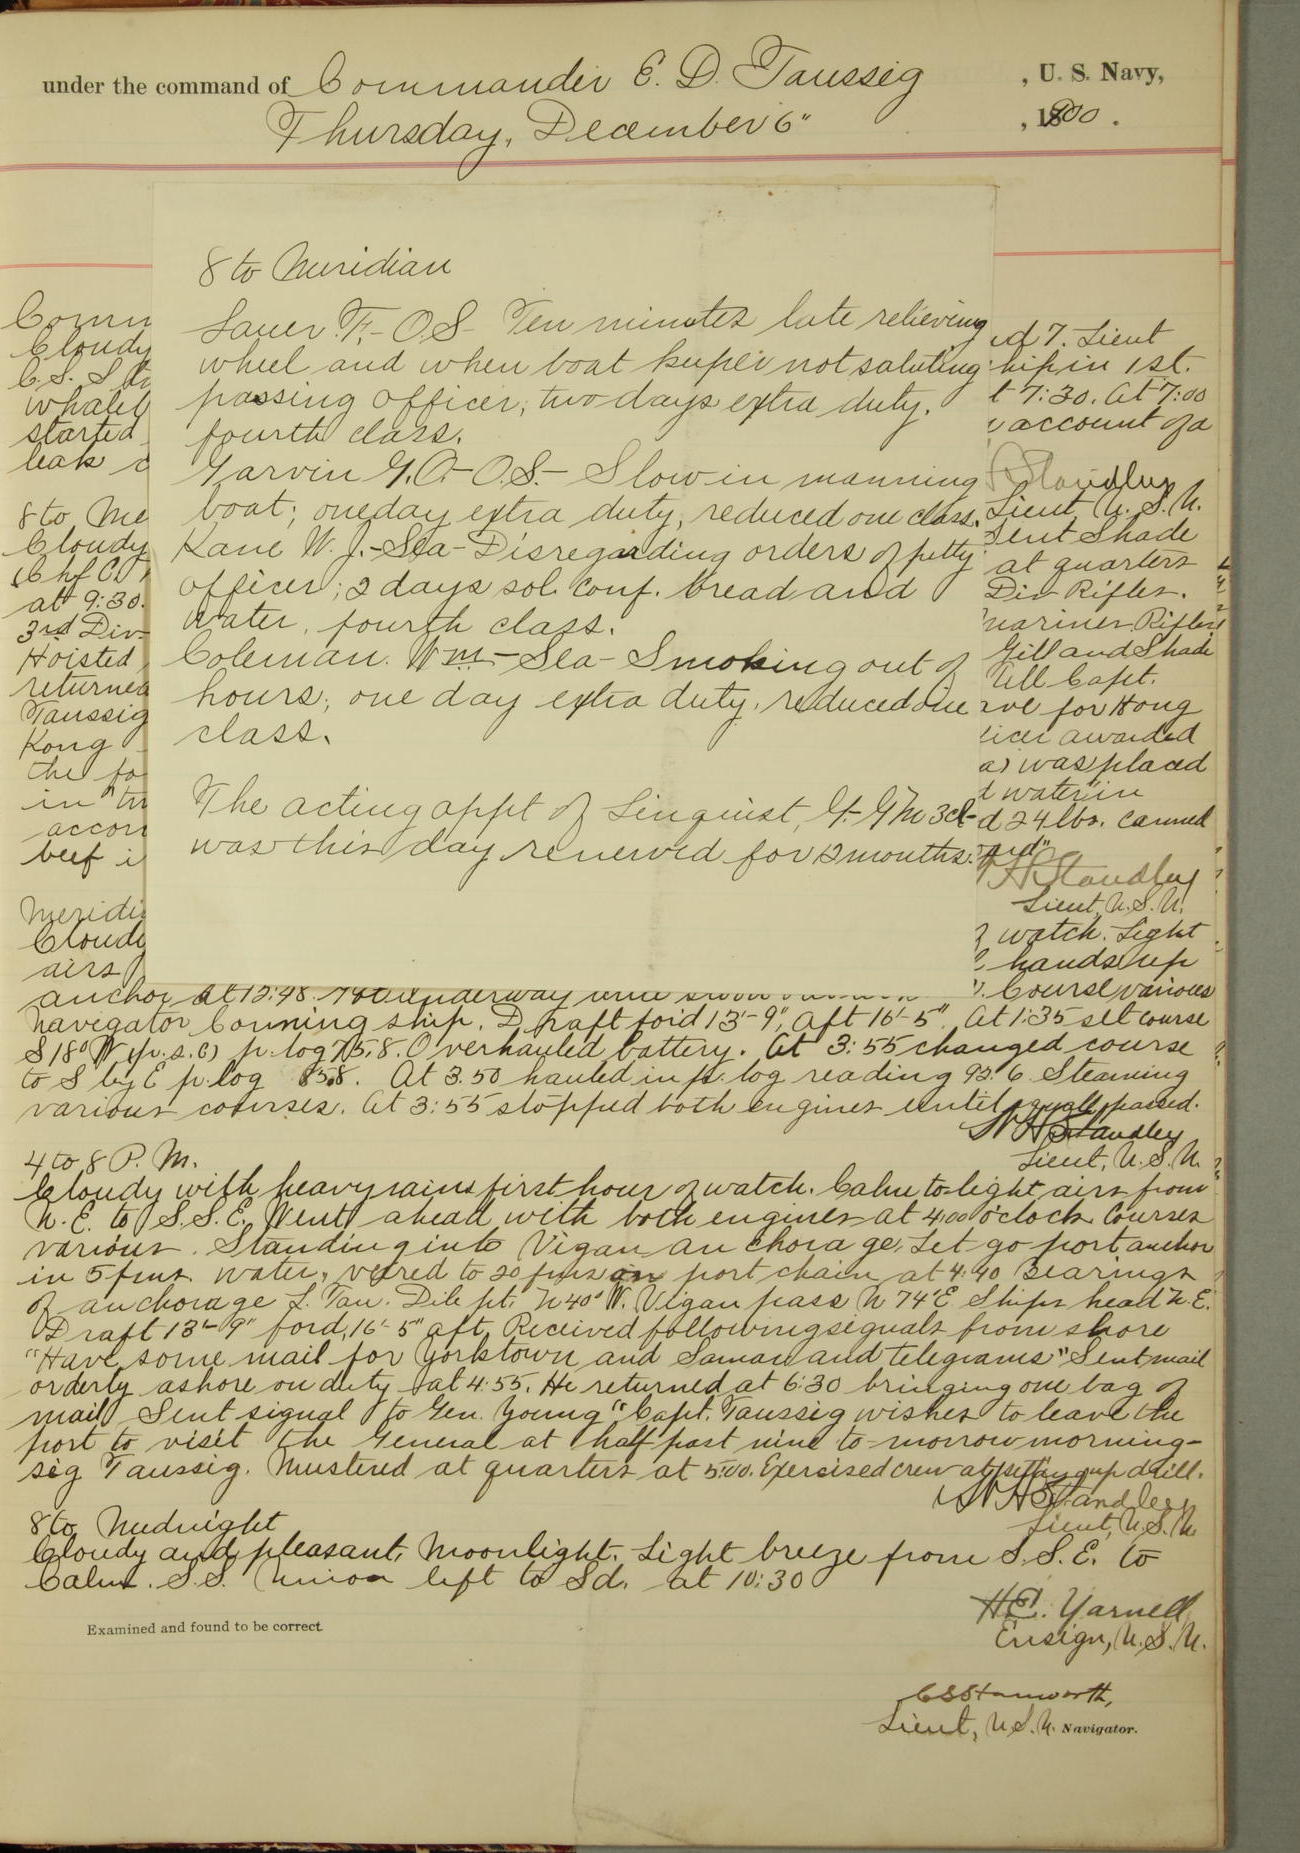 under the command of Commander E. D. Taussig , U. S. Navy,
Thursday, December 6" , 1900.
8 to Meridian
Lauer F.- O.S- Ten minutes late relieving
wheel and when boat keeper not saluting
passing officer, two days extra duty.
fourth class.
Garvin G.A- O.S.- Slow in manning
boat; one day extra duty, reduced one class.
Kane W. J.- Sea- Disregarding orders of petty
officer; 2 days sol. conf. bread and
water, fourth class.
Coleman. Wm- Sea- Smoking out of
hours, one day extra duty, reduced one
class.
The acting appt of Linquist, G. G M 3cl-
was this day renewed for 12 months.
Cloudy
C.S.
started
leak
8 to Me
Cloudy
at 9:30.
3rd Div
Hoisted
returned
Taussig
Kong
the fo
in
accor
beef i
Meridi
Cloudy
airs
d 7. Lieut
hip in 1st.
t 7:30. At 7:00
account of a
Standley
Lieut, U. S. N.
Lieut Shade
at quarters
Div Rifles.
mariner Rifles
Gill and Shade
Till Capt.
rve for Hong
ficer awarded
was placed
d water in
d 24 lbs. canned
ard"
W H Standley
Lieut, U.S.N.
watch. Light
hands up
Course various
anchor at 12:48. Got underway
navigator Conning ship. Draft for'd 13'-9", aft 16'-5". At 1:35 set course
S 18° W (p.s.c) p. log 75.8. Overhauled battery. At 3:55 changed course
to S by E p. log 85.8. At 3.50 hauled in p. log reading 92.6. Steaming
various courses. At 3:55 stopped both engines until squall passed.
W H Standley
Lieut, U.S.N.
4 to 8 P. M.
Cloudy with heavy rains first hour of watch. Calm to light airs from
N. E. to S.S.E. Went ahead with both engines at 4:00 o'clock. Courses
various. Standing into Vigan anchorage. Let go port anchor
in 5 fms. water, veered to 20 fms on port chain at 4:40 Bearings
of anchorage Dile pt. N 40° W. Vigan pass N 74° E. Ships head N.E.
Draft 13'-9" for'd, 16'-5" aft. Received following signals from shore
"Have some mail for Yorktown and Samar and telegrams" Sent mail
orderly ashore on duty at 4:55. He returned at 6:30 bringing one bag of
mail. Sent signal to Gen. Young "Capt. Taussig wishes to leave the
port to visit the General at half past nine to-morrow morning-
sig Taussig. Mustered at quarters at 5:00. Exercised crew at setting up drill.
W H Standley
Lieut, U.S.N.
8 to Midnight
Cloudy and pleasant, Moonlight. Light breeze from S.S.E. to
Calm. S.S. Union left to Sd. at 10:30
H.E. Yarnell
Ensign, U.S.N.
Examined and found to be correct.
C S Stanworth,
Lieut, U.S.N. Navigator.